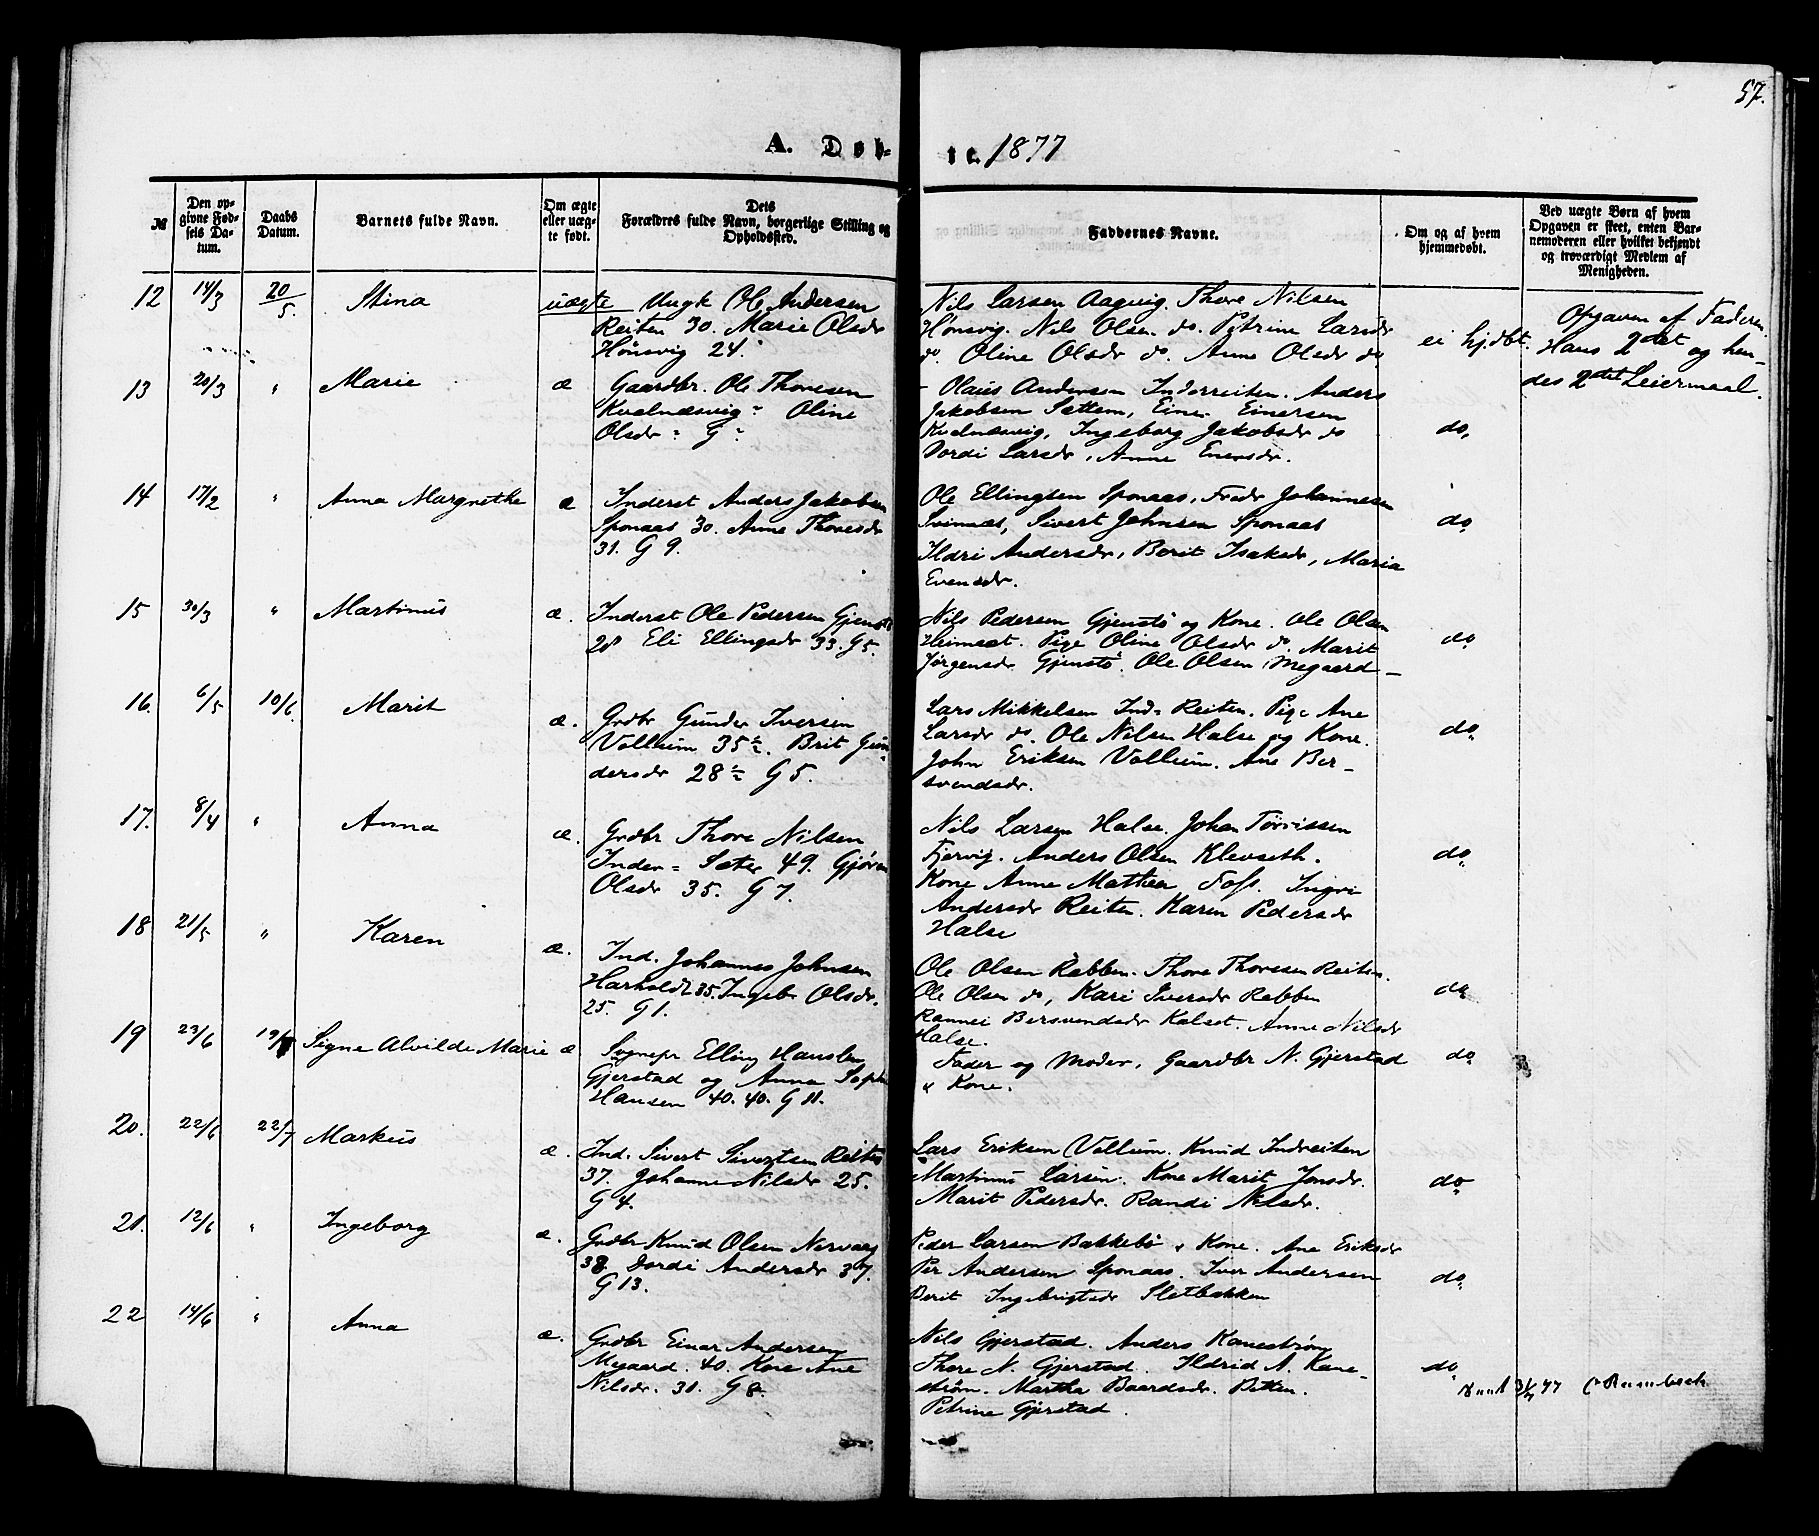 57.
A. Døb-
te. 1877
№
Den op-
givne Fød-
sels Da-
tum.
Daabs
Datum.
Barnets fulde Navn.
Om ægte
eller uæg-
te født.
Dets
Forældres fulde Navn, borgerlige Stilling og
Opholdssted.
Faddernes Navne.
Om og af hvem
hjemmedøbt.
Ved uægte Børn af hvem
Opgaven er skeet, enten Bar-
nemoderen eller hvilket bekjendt
og troværdigt Medlem af
Menigheden.
12 14/3 20/5. Stina uægte Ungk Ole Andersen
Reiten 30. Marie Olsdr
Hønsvig 24.
Nils Larsen Aagvig. Thore Nilsen
Hønsvig. Nils Olsen do. Petrine Larsdr
do. Oline Olsdr do. Anne Olsdr do
ei hjdbt.
Opgaven af Faderen.
Hans 2det og hen-
des 2det Leiermaal.
13 20/3 " Marie æ Gaardbr. Ole Thoresen
Kvalnæsvig Oline
Olsdr G
Olaus Andersen Inderreiten. Anders
Jakobsen Sættem, Einer Einersen
Kvalnæsvig, Ingeborg Jakobsdr do
Dordi Larsdr, Anne Enersdr.
do,
14 17/2 " Anna Margrethe æ Inderst Anders Jakobsen
Sponaas 30. Anne Thoresdr
31. G 9.
Ole Ellingsen Sponaas, Fredr Johannesen
Svinnæs, Sivert Johnsen Sponaas
Ildri Andersdr, Borit Isaksdr, Maria
Evensdr.
do
15 30/3 " Martinus æ. Inderst Ole Pedersen Gjenstø
28 Eli Ellingsdr 33. G 5.
Nils Pedersen Gjenstø og Kone. Ole Olsen
Heimsæt. Pige Oline Olsdr do. Marit
Jørgensdr. Gjenstø. Ole Olsen Megaard
do
16. 6/5 10/6. Marit æ. Grdbr Gunder Iversen
Vollum 35½. Brit Gun-
dersdr 28½ G 5.
Lars Mikkelsen Ind- Reiten. Pige Ane
Larsdr do. Ole Nilsen Halse og Kone.
John Eriksen Vollum. Ane Ber-
svendsdr.
do
17. 8/4 " Anna æ. Grdbr Thore Nilsen
Inder- Sæter 49. Gjøren
Olsdr 35. G 7.
Nils Larsen Halse. Johan Tørrissen
Fjervig. Anders Olsen Klevseth.
Kone Anne Mathea Foss. Ingri
Andersdr Reiten. Karen Pedersdr
Halse
do
18 21/5 " Karen æ. Ind. Johannes Johnsen
Harholdt 35. Ingebr Olsdr.
25. G 1.
Ole Olsen Rabben. Thore Thoresen Reiten.
Ole Olsen do, Kari Iversdr Rabben
Rannei Bersvendsdr Kalset. Anne Nilsdr
Halse.
do
19 23/6 Signe Alvilde Marie æ Sognepr Elling Hansen
Gjerstad og Anna Sophi
Hansen 40. 40. G 11.
Fader og Moder, Gaardbr N. Gjerstad
" Kone.
do
20. 22/6 22/7 Markus æ. Ind. Sivert Sivertsen Reiten
37. Johanne Nilsdr 25.
G 4.
Lars Eriksen Vollum. Knud Indreiten
Martinus Larsen. Kone Marit Jonsdr.
Marit Pedersdr. Randi Nilsdr.
do
21. 12/6 " Ingeborg æ. Grdbr Knud Olsen Nervaag
38 Dordi Andersdr 37.
G 13.
Peder Larsen Bakkebø " Kone. Ane Eriksdr
Per Andersen Sponaas. Iver Andersen
Berit Ingebrigtsdr Sletbakken
do
22 14/6 " Anna æ. Grdbr Einar Andersen
Megaard. 40. Kone Ane
Nilsdr. 31. G 8.
Nils Gjerstad. Anders Kanestrøm
Thore N. Gjerstad. Ildrid A. Kane-
strøm. Martha Baardsdr. Botten.
Petrine Gjerstad.
do